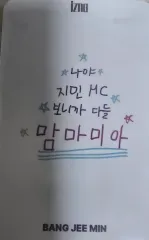 izna
나야
지민 MC
보니까 다들
맘마미아
BANG JEE MIN